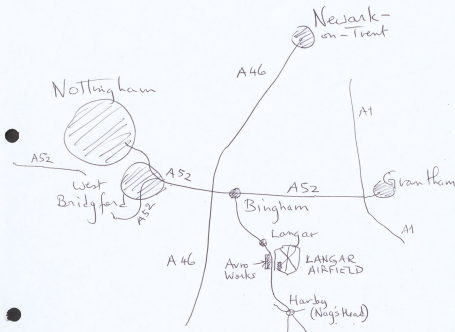 Newark-
on-Trent
A46
Nottingham
A1
A52
West
Bridgford
A52
A52
A52
Grantham
Bingham
A1
Langar
A46
Avro
Works
LANGAR
AIRFIELD
Harby
(Nag's Head)